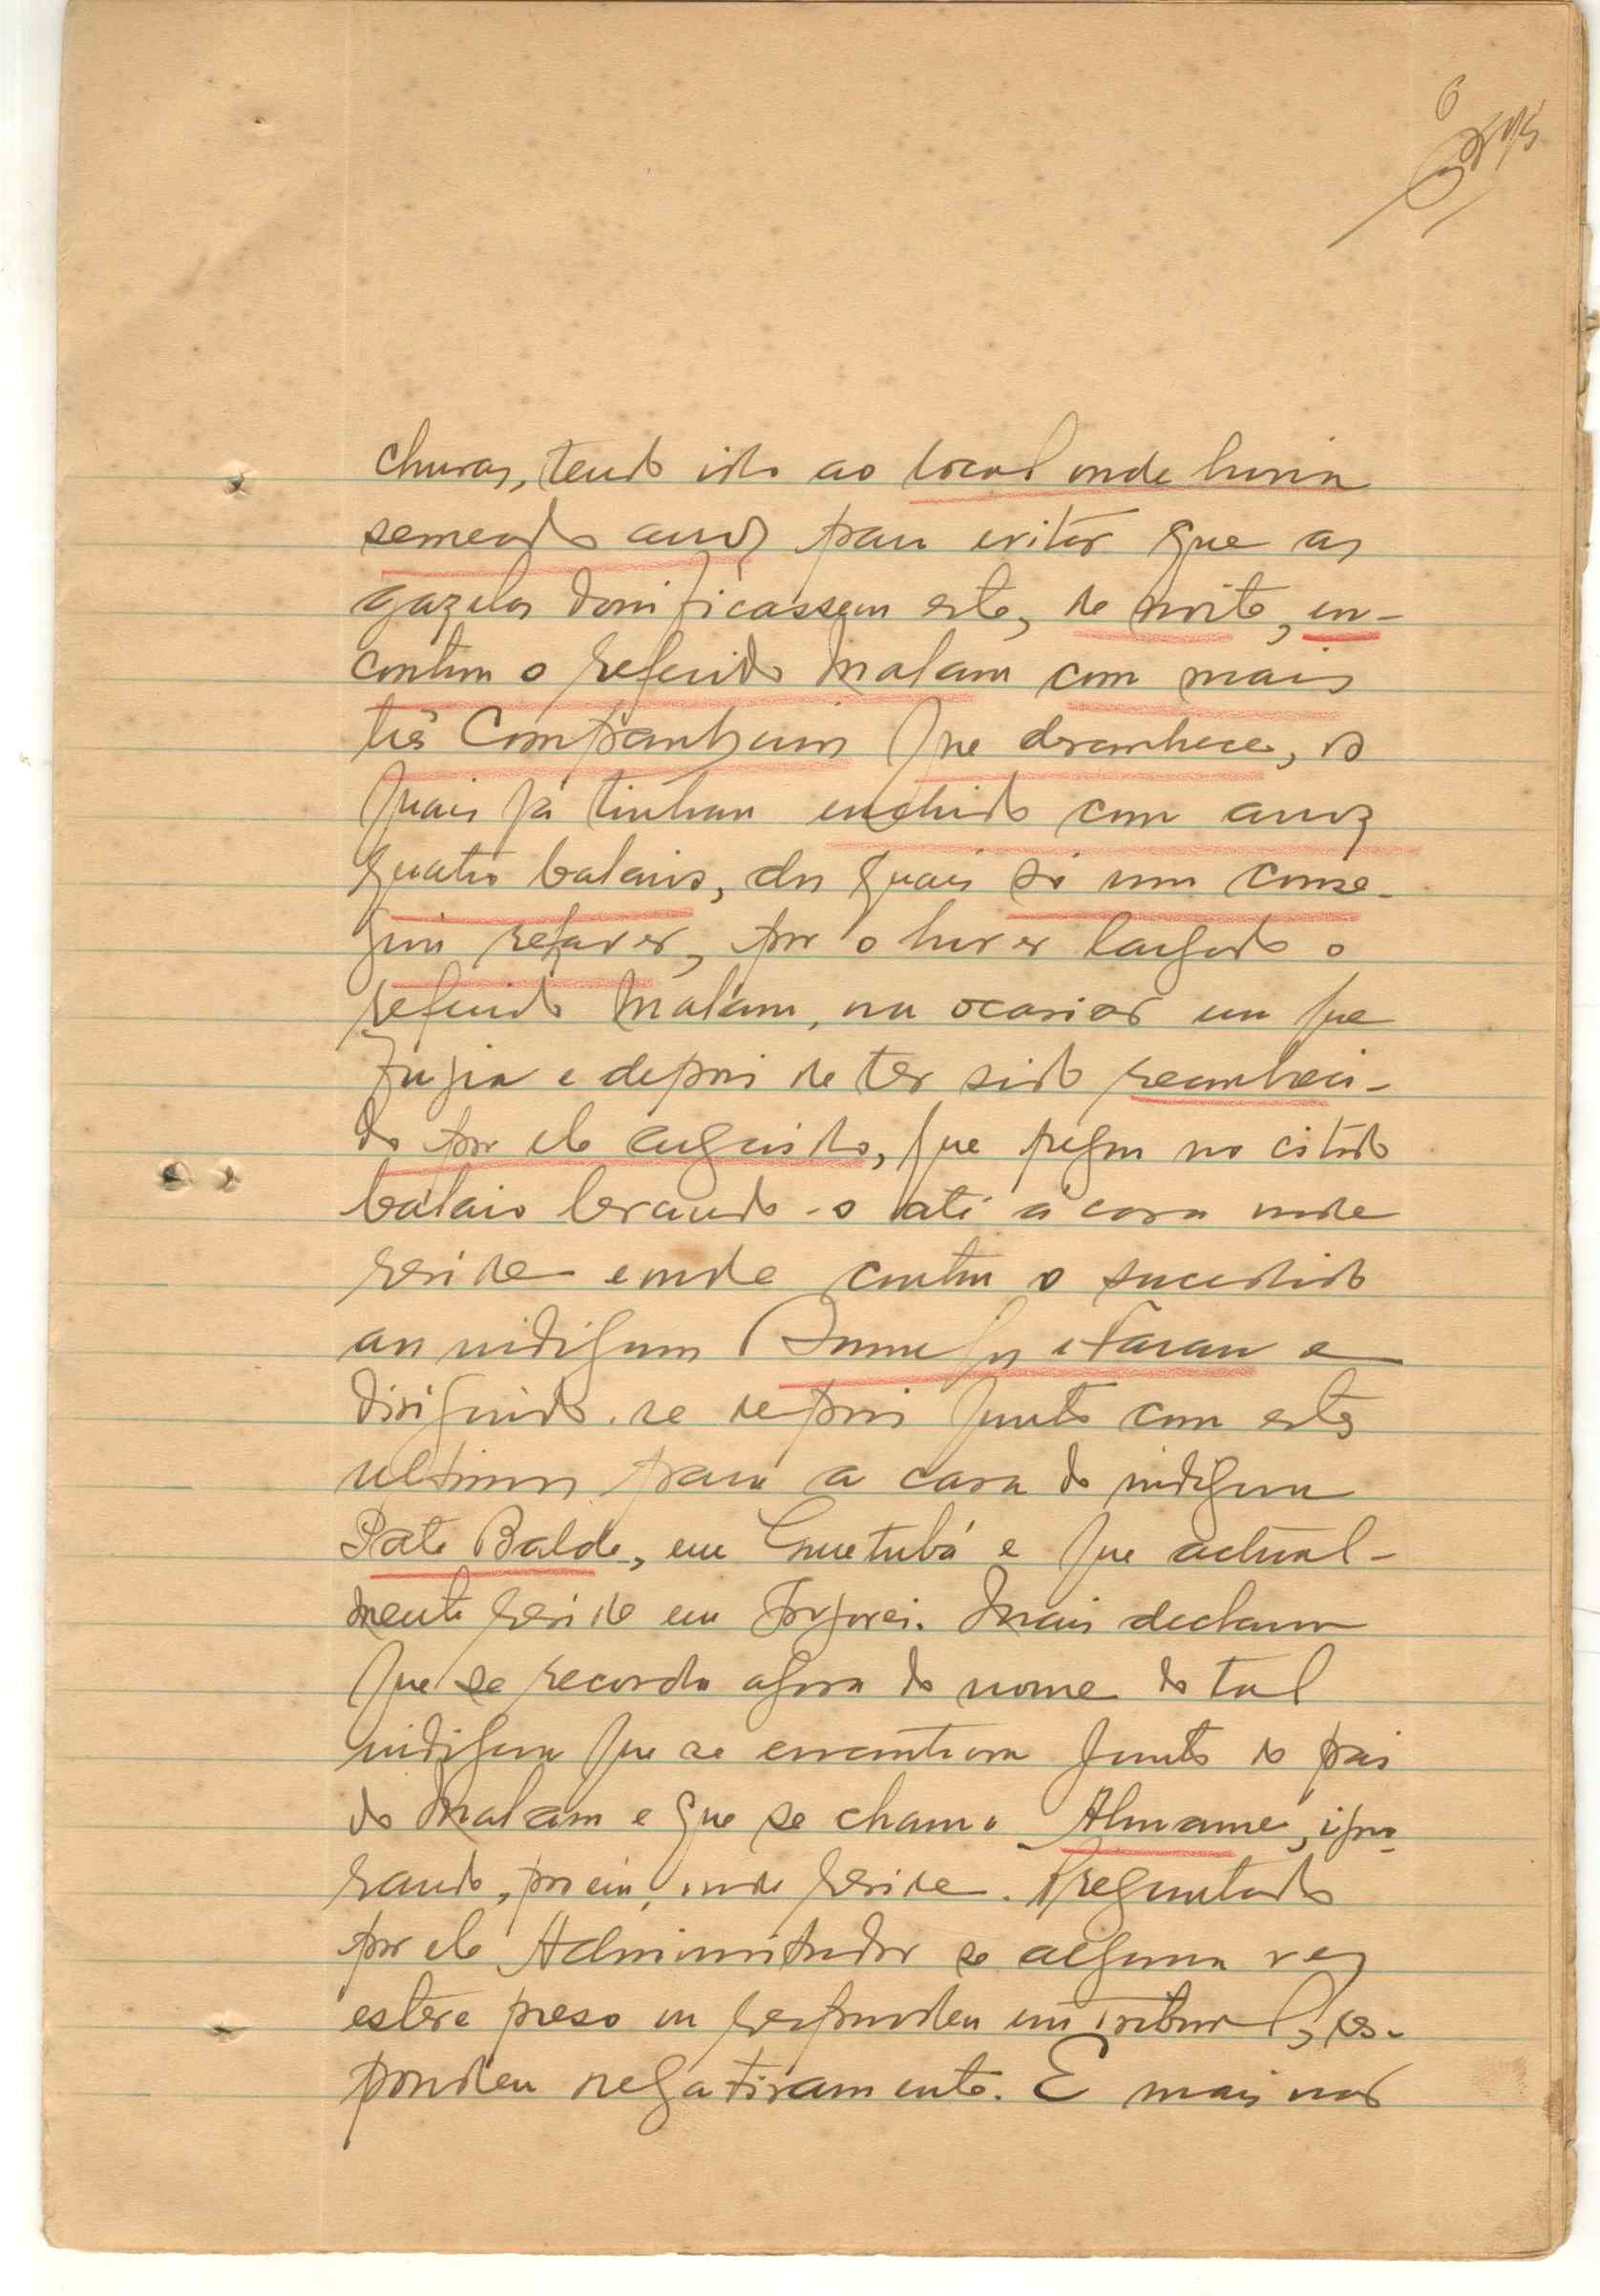 6
chuvas, tendo ido ao local onde havia
semeado arroz para evitar que as
gazelas danificassem este, de noite, en-
controu o referido Malam com mais
três companheiros que desconhece, os
quais já tinham enchido com arroz
quatro balaios, dos quais só um conse-
guiu rehaver, por o haver largado o
referido Malam, na ocasião em que
fugia e depois de ter sido reconheci-
do por ele arguido, que pegou no citado
balaio levando-o até á casa onde
reside e onde contou o sucedido
ao indigena e
dirigindo-se depois junto com este
ultimo para a casa do indigena
Pate Balde, em e que actual-
mente reside em Mais declarou
que se recorda agora do nome do tal
indigena que se encontrava junto do pai
do Malam e que se chama Almame, igno-
rando, porém, onde reside. Preguntado
por ele Administrador se alguma vez
esteve preso ou respondeu em tribunal, res-
pondeu negativamente. E mais não